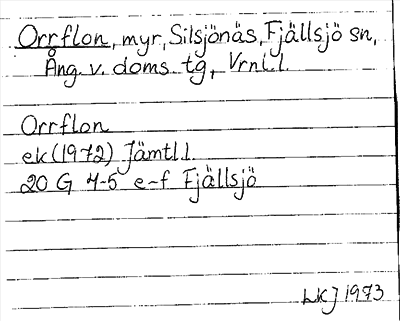 Orrflon, myr, Silsjönäs, Fjällsjö sn,
Ång. v. doms. tg, Vrnl.l.
Orrflon
ek (1972) Jämtl.l.
20 G 4-5 e-f Fjällsjö
LKJ 1973